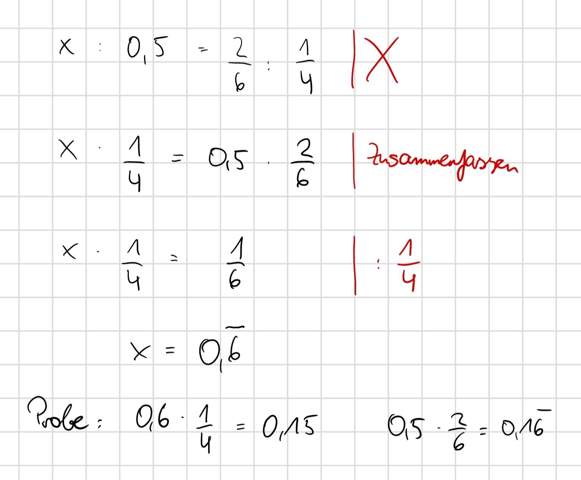 x : 0,5 = 2/6 : 1/4 | X
x · 1/4 = 0,5 · 2/6 | Zusammenfassen
x · 1/4 = 1/6 | : 1/4
x = 0,6̅
Probe: 0,6 · 1/4 = 0,15 0,5 · 2/6 = 0,16̅